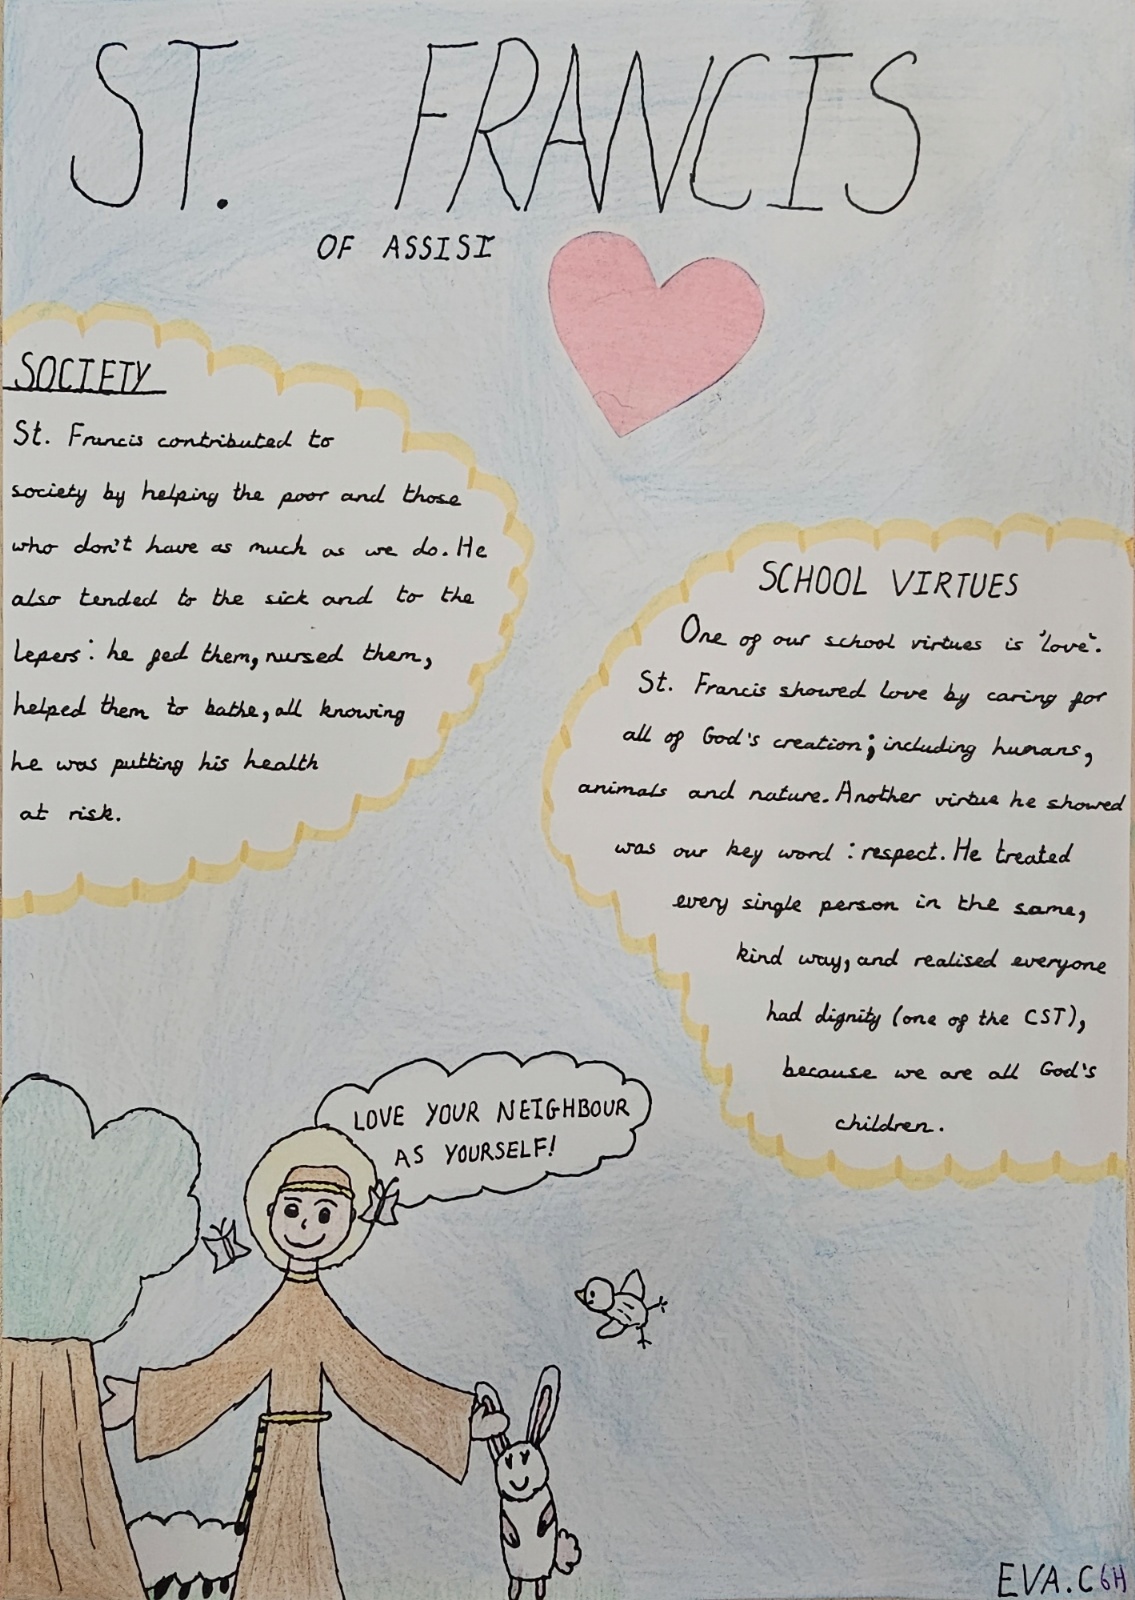 ST. FRANCIS
OF ASSISI
SOCIETY
St. Francis contributed to
society by helping the poor and those
who don't have as much as we do. He
also tended to the sick and to the
lepers: he fed them, nursed them,
helped them to bathe, all knowing
he was putting his health
at risk.
SCHOOL VIRTUES
One of our school virtues is 'love'.
St. Francis showed love by caring for
all of God's creation; including humans,
animals and nature. Another virtue he showed
was our key word: respect. He treated
every single person in the same,
kind way, and realised everyone
had dignity (one of the CST),
because we are all God's
children.
LOVE YOUR NEIGHBOUR
AS YOURSELF!
EVA.C 6H